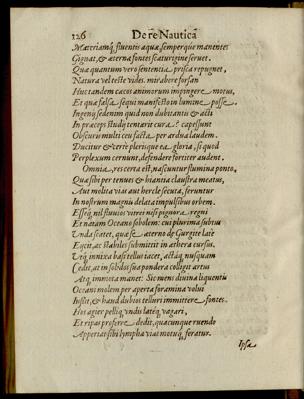 126 De re Nautica
Materiamq́ fluentis aquæ, semperque manentes
Gignat, & æterna fontes scaturigine seruet.
Quæ quantum vero sententia prisca repugnet,
Natura vel teste vides. mirabere forsan
Huc tandem cæcos animorum impingere motus,
Et quæ falsa sequi manifesto in lumine posse
Ingenÿ sedenim quid non dubitantis & acti
In præceps studÿ tentarit cura? capessunt
Obscuri multi ceu facta per ardua laudem.
Ducitur & certè plerisque ea gloria, si quod
Perplexum cernunt, defendere fortiter audent.
Omnia, res certa est, nascuntur flumina ponto,
Quæ sibi per tenues & hiantia claustra meatus,
Aut molita vias aut hercle secuta, feruntur
In nostrum magnis delata impulsibus orbem.
Esseq́, nil fluuios vitrei nisi pignora regni
Et natam Oceano sobolem: cui plurima subtus
Unda scatet, quæ se æterno de Gurgite latè
Egcit, ac stabiles submittit in æthera cursus.
Utq́, innixa basi tellus iacet, actaq́, nusquam
Cedit, at in sobilos sua pondera colligit artus
Atq́, immota manet: Sic mens diuina liquentiu
Oceani molem per aperta foramina volui
Iussit, & haud dubios telluri immittere fontes.
Hos agier pelliq́, vndis lateq́, vagari,
Et ripas proferre dedit, quacunque ruendo
Appertas sibi lympha vias motuq́, feratur.
Ipsa